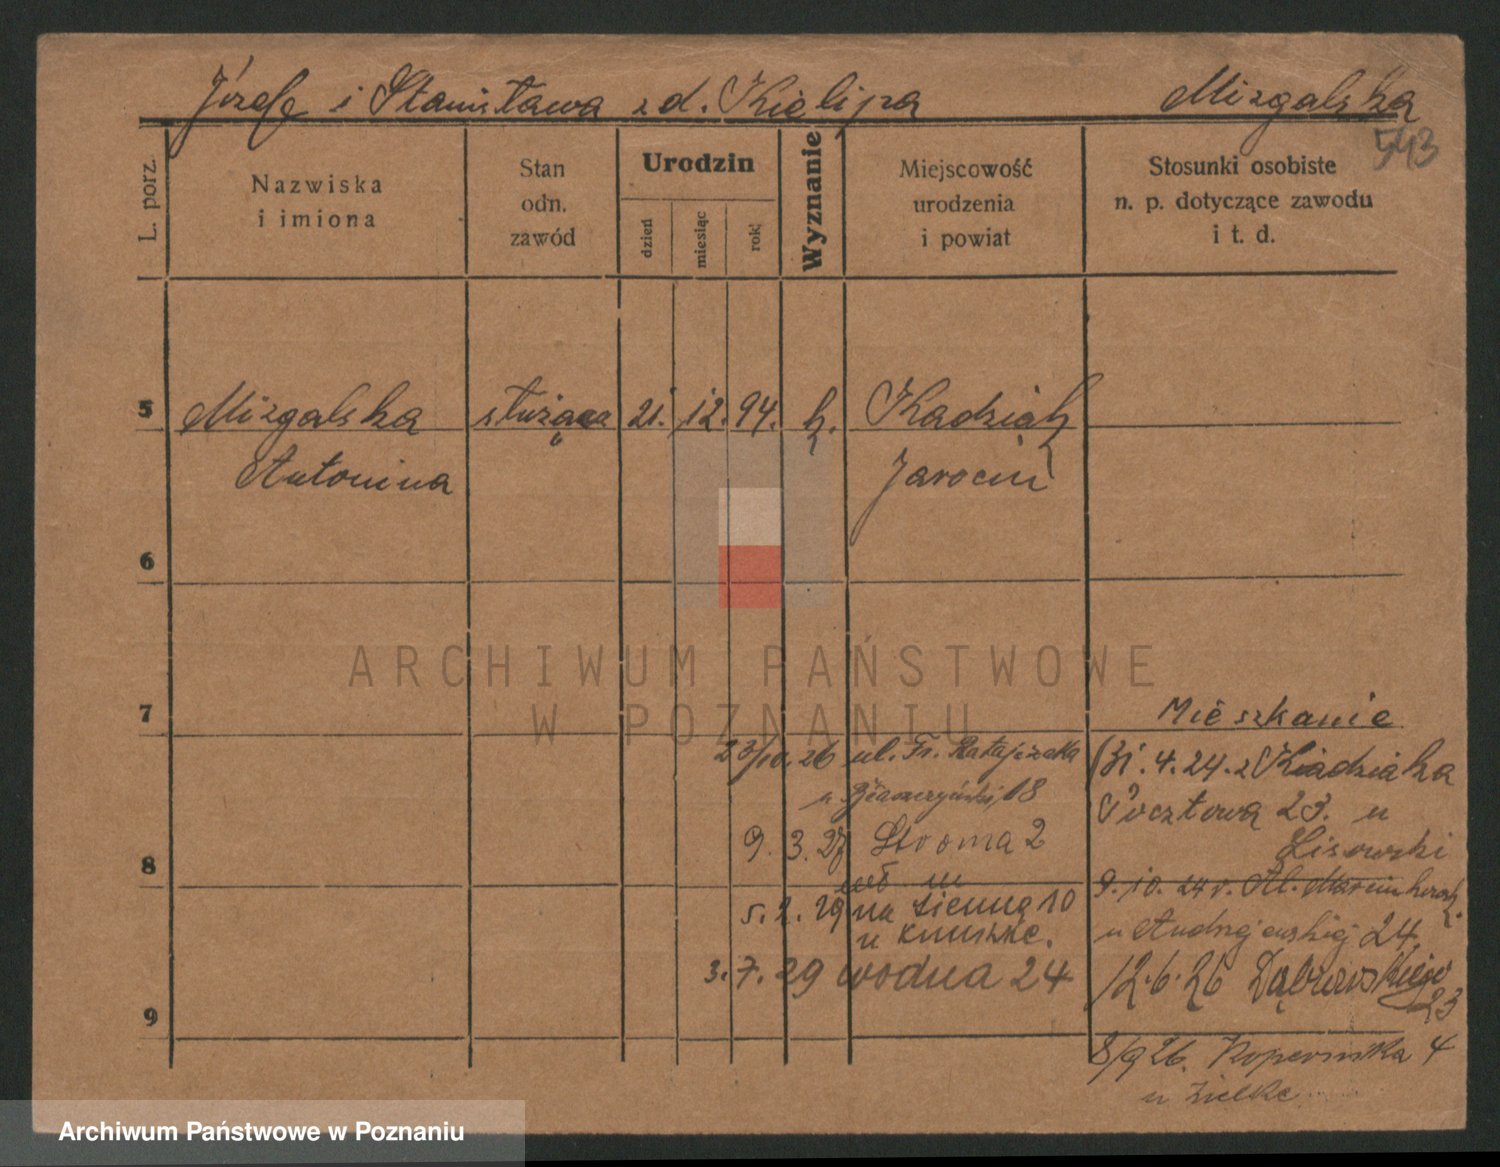 Józefa i Stanisława z d. Kielipa Mizgalska
543
L. porz.
Nazwiska
i imiona
Stan
odn.
zawód
Urodzin
dzień
miesiąc
rok
Wyznanie
Miejscowość
urodzenia
i powiat
Stosunki osobiste
n. p. dotyczące zawodu
i t. d.
5 Mizgalska służąca 21. 12. 94. k. Kadziak
Antonina Jarocin
6
ARCHIWUM PAŃSTWOWE
W POZNANIU
7
Mieszkanie
23/10.26 ul. Fr. Ratajczaka
18
9. 3. 27 Stroma 2
5. 2. 29 na Sienną 10
u
3. 7. 29 wodna 24
31. 4. 24. z Kiadziaka
Pocztowa 23. u
Lisowski
9. 10. 24 r. Al. Marcinkowsk.
u Andrzejewskiej 24.
12.6.26 Dąbrowskiego
23
8/9 26. Kopernika 4
u Zielke
8
9
Archiwum Państwowe w Poznaniu